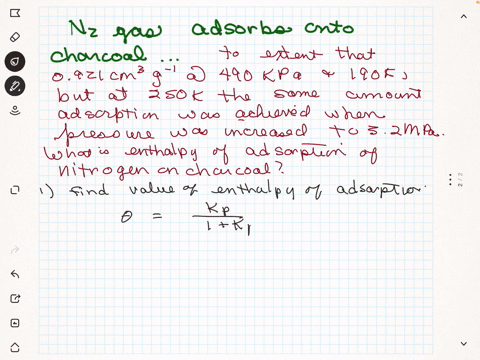 N2 gas adsorbs onto
charcoal ... to extent that
0.921 cm³ g⁻¹ @ 490 KPa & 190K,
but at 250K the same amount
adsorption was achieved when
pressure was increased to 3.2MPa.
What is enthalpy of adsorption of
nitrogen on charcoal?
1) Find value of enthalpy of adsorption.
θ = Kp / 1 + Kp